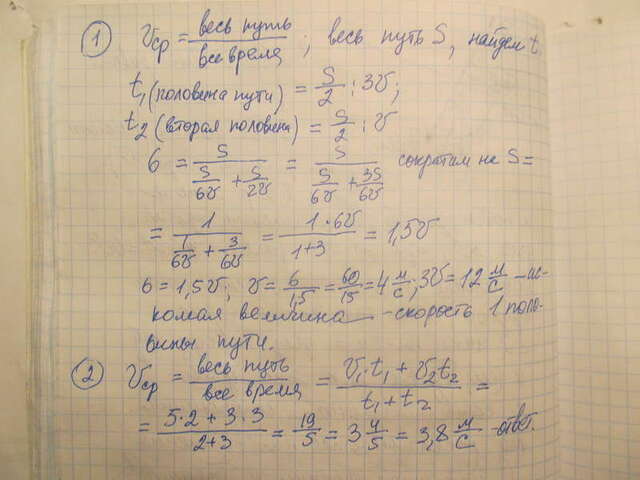 ① Vср = весь путь / все время ; весь путь S, найдем t
t₁ (половина пути) = S/2 : 3V;
t₂ (вторая половина) = S/2 : V
6 = S / (S/6V + S/2V) = S / (S/6V + 3S/6V) сократим на S =
= 1 / (1/6V + 3/6V) = 1·6V / 1+3 = 1,5V
6 = 1,5V; V = 6/1,5 = 60/15 = 4 м/с; 3V = 12 м/с - ис-
комая величина - скорость 1 поло-
вины пути.
② Vср = весь путь / все время = V₁·t₁ + V₂t₂ / t₁ + t₂ =
= 5·2 + 3·3 / 2+3 = 19/5 = 3 4/5 = 3,8 м/с - ответ.